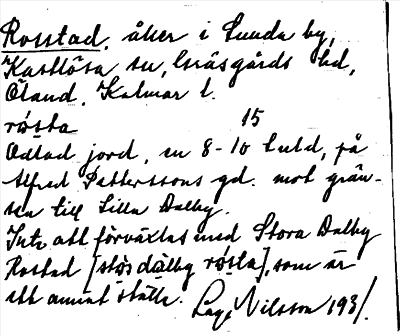 Rosstad, åker i Lunda by,
Kastlösa sn, Gräsgårds hd,
Öland, Kalmar l.
røsta 15
Odlad jord, en 8-10 tnld, på
Alfred Petterssons gd. mot grän-
sen till Lilla Dalby.
Inte att förväxlas med Stora Dalby
Rostad [stōs dalby røsta], som är
ett annat ställe. Nilsson 193/.